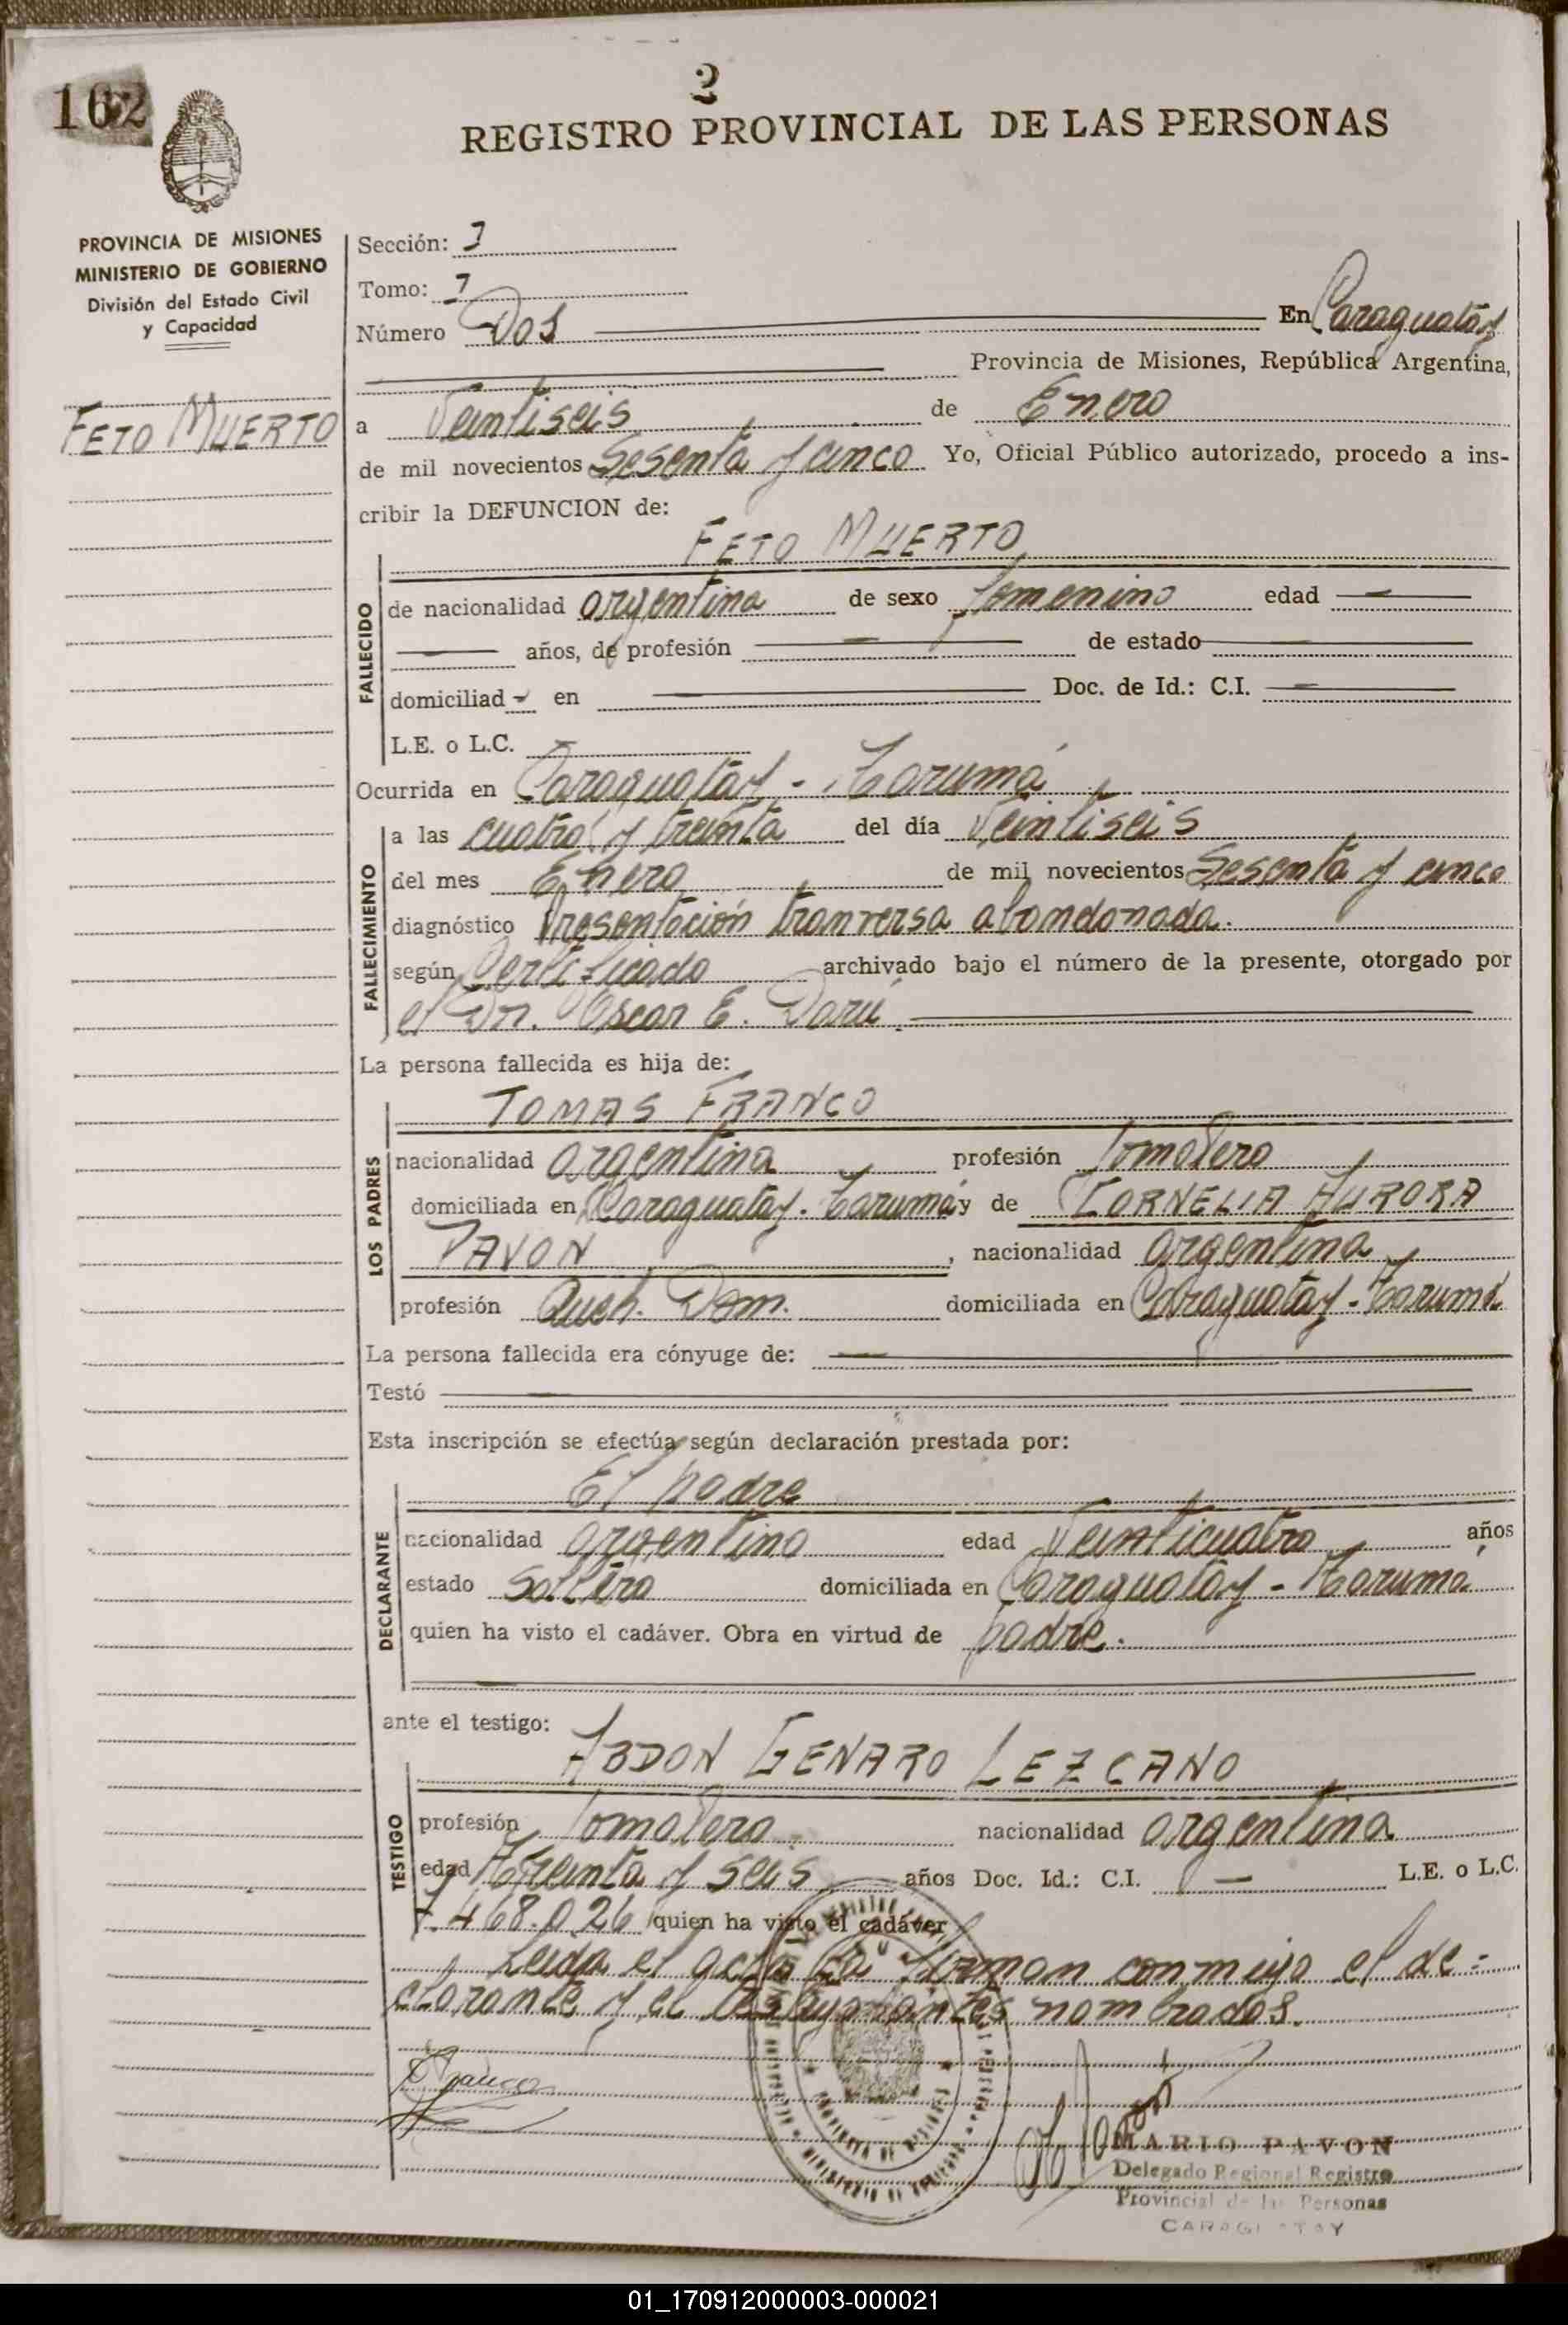 162
2
REGISTRO PROVINCIAL DE LAS PERSONAS
PROVINCIA DE MISIONES
MINISTERIO DE GOBIERNO
División del Estado Civil
y Capacidad
FETO MUERTO
Sección: I
Tomo: 7
Número Dos En Caraguatay
Provincia de Misiones, República Argentina,
a Veintiseis de Enero
de mil novecientos Sesenta y cinco Yo, Oficial Público autorizado, procedo a ins-
cribir la DEFUNCION de:
FETO MUERTO
FALLECIDO
de nacionalidad argentina de sexo femenino edad —
— años, de profesión — de estado —
domiciliad - en — Doc. de Id.: C.I. —
L.E. o L.C.
Ocurrida en Caraguatay - Tarumá
FALLECIMIENTO
a las cuatro y treinta del día Veintiseis
del mes Enero de mil novecientos Sesenta y cinco
diagnóstico Presentación tranversa abandonada.
según Certificado archivado bajo el número de la presente, otorgado por
el Dr. Oscar E. Darú.
La persona fallecida es hija de:
LOS PADRES
TOMAS FRANCO
nacionalidad argentina profesión Jornalero
domiciliada en Caraguatay - Tarumá y de CORNELIA AURORA
PAVON, nacionalidad argentina
profesión Queh. Dom. domiciliada en Caraguatay - Tarumá
La persona fallecida era cónyuge de: —
Testó —
Esta inscripción se efectúa según declaración prestada por:
DECLARANTE
El padre
nacionalidad argentino edad Veinticuatro años
estado Soltero domiciliada en Caraguatay - Tarumá
quien ha visto el cadáver. Obra en virtud de padre.
ante el testigo:
TESTIGO
ABDON GENARO LEZCANO
profesión Jornalero nacionalidad argentina
edad Treinta y seis años Doc. Id.: C.I. — L.E. o L.C.
7.468.026 quien ha visto el cadáver
Leida el acta la firman conmigo el de-
clarante y el testigo antes nombrados.
MARIO PAVON
Delegado Regional Registro
Provincial de las Personas
CARAGUATAY
01_170912000003-000021